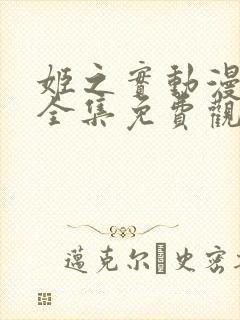 姬之實動漫
全集免費觀
邁克尔 史密